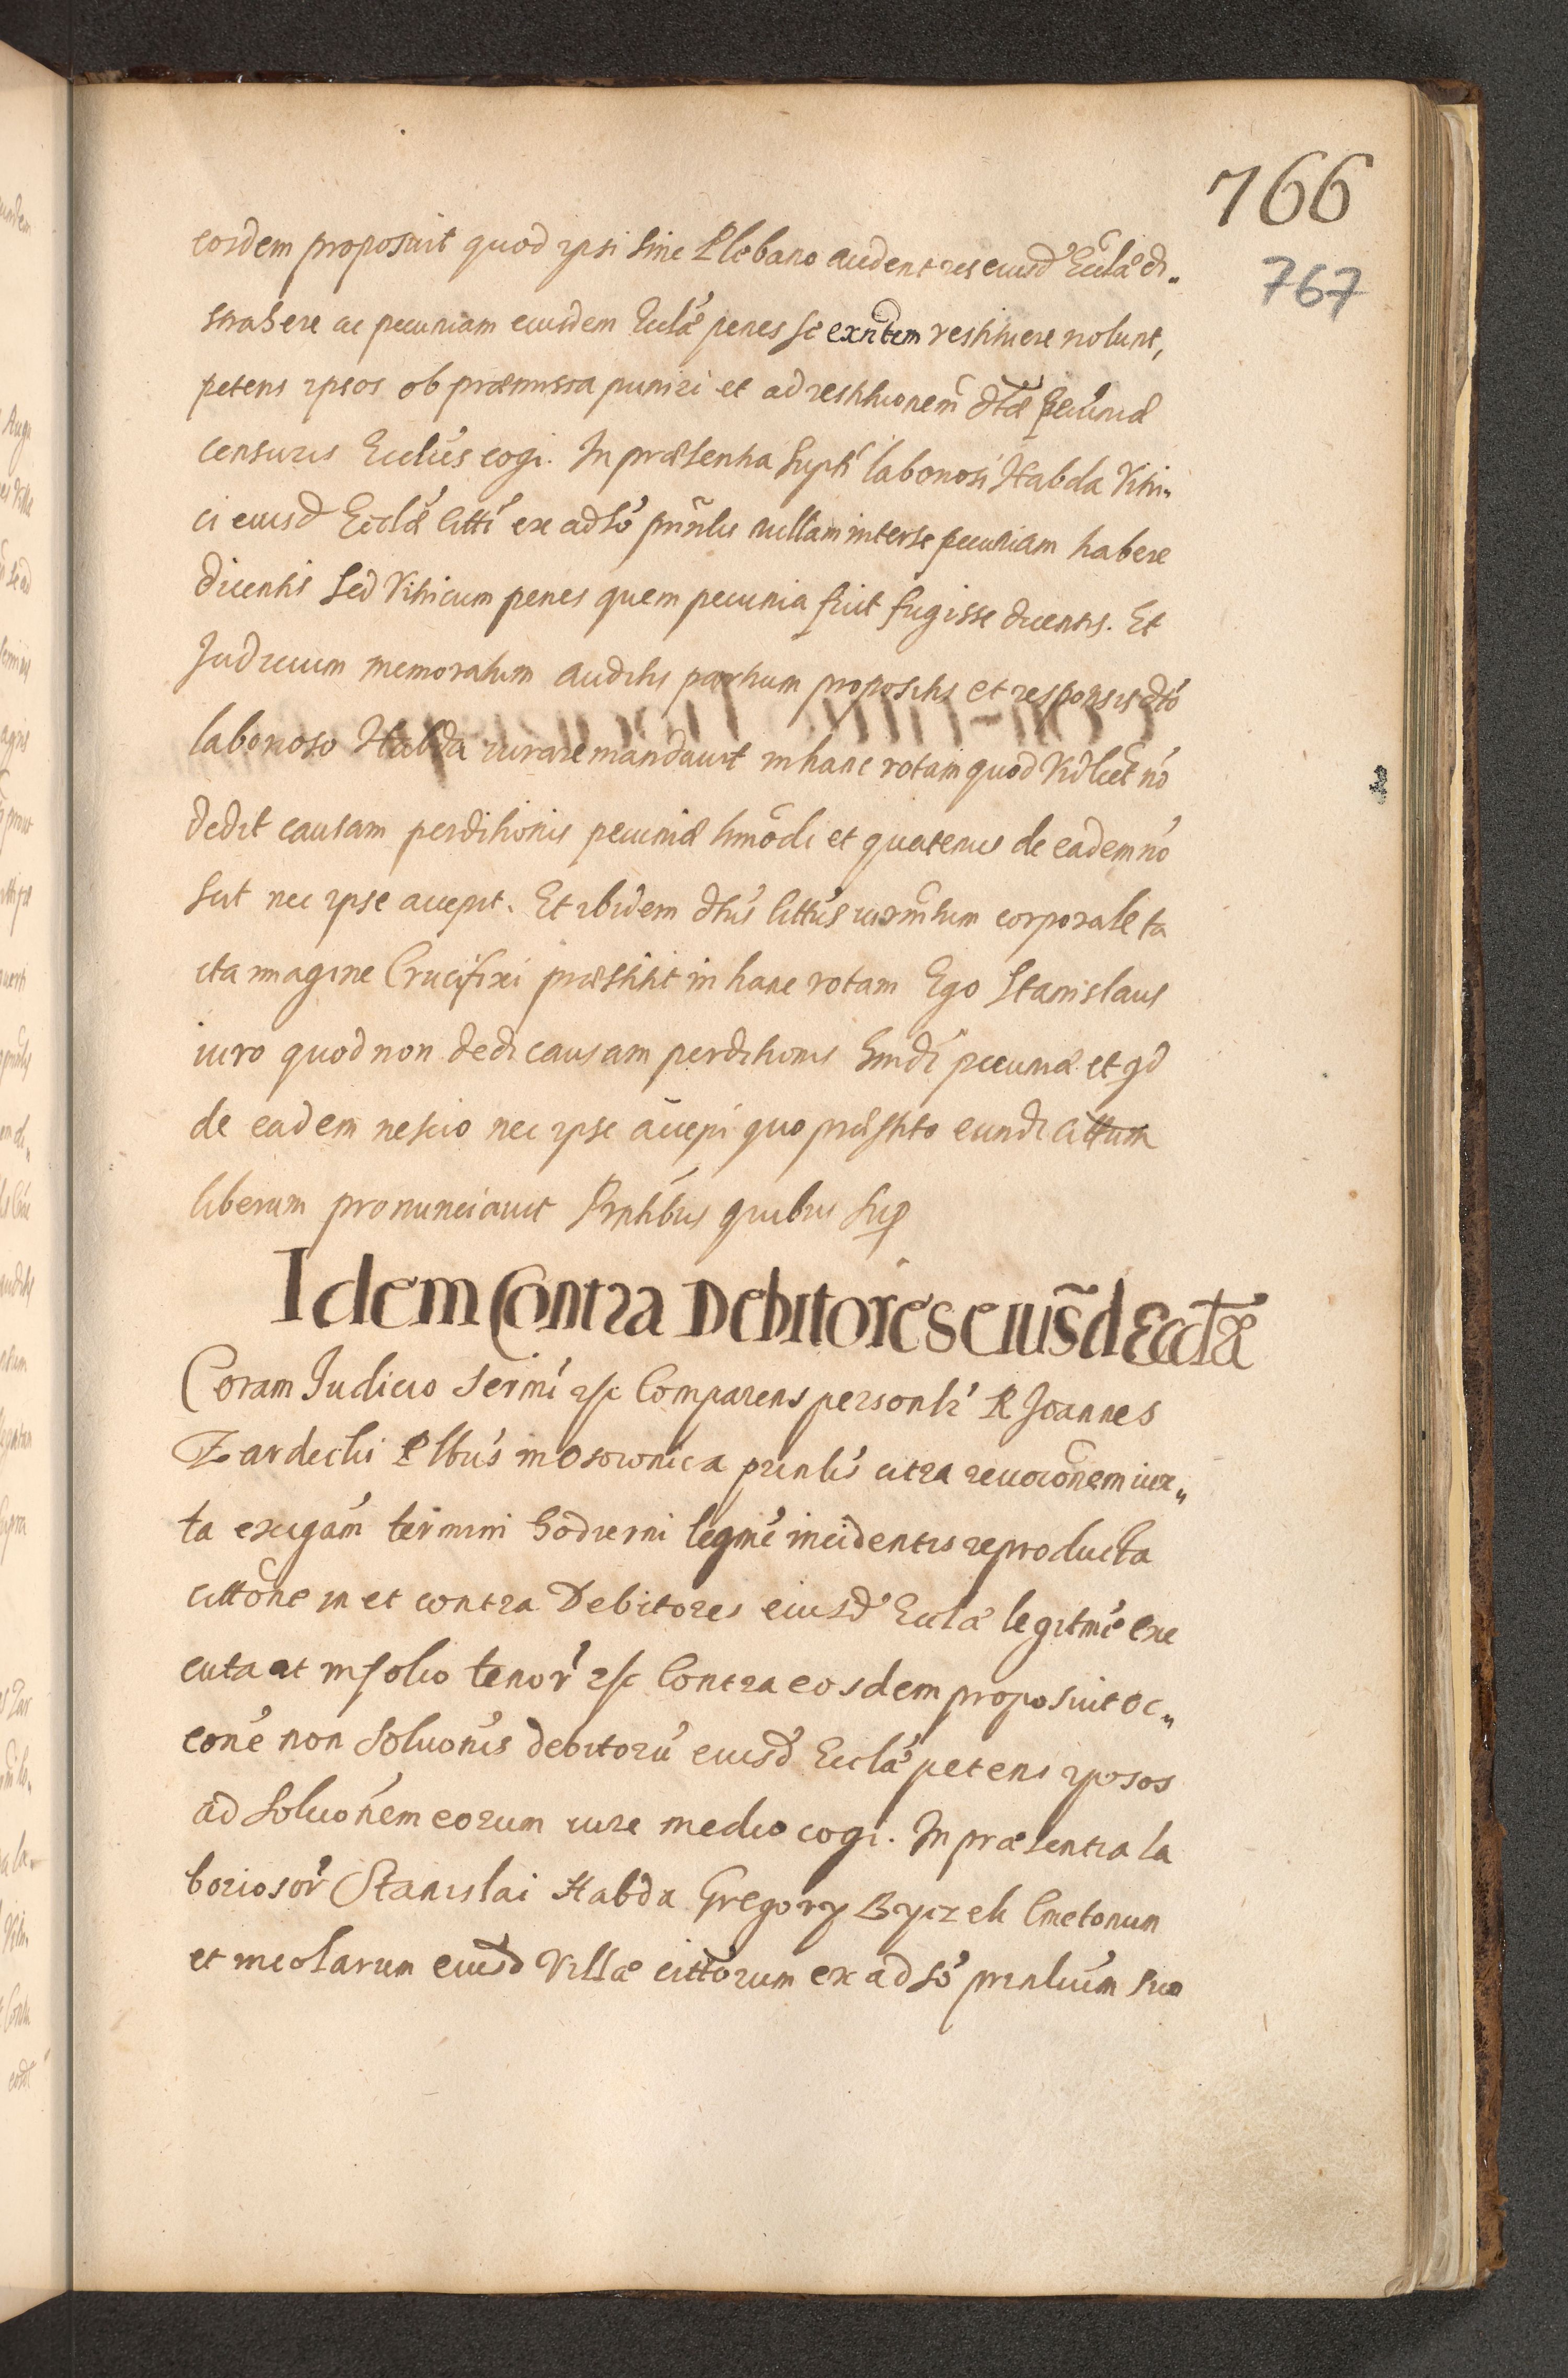 766
767
eosdem proposuit quod ipsi sine Plebano audent res eiusd Ecclae di„
strahere ac pecuniam eiusdem Ecclae penes se exntem restituere nolunt,
petens ipsos ob praemissa puniri et ad restitutionem dtae pecuniae
censuris Ecclcis cogi. In praesentia supti laboriosi Habda Vitri„
ci eiusd Ecclae citti ex adso prntis nullam inter se pecuniam habere
dicentis sed Vitricum penes quem pecunia fuit fugisse dicentis. Et
Judicium memoratum auditis partium propositis et responsis dto
laborioso Habda iurare mandauit in hanc rotam quod vidlicet no
dedit causam perditionis pecuniae hmodi et quatenus de eadem no
scit nec ipse accepit. Et ibidem dtus cittus iurmtum corporale ta
cta imagine Crucifixi praestitit in hanc rotam Ego Stanislaus
iuro quod non dedi causam perditionis hmdi pecuniae et qd
de eadem nescio nec ipse accepi quo praestito eundi cittum
liberum pronunciauit Pntibus quibus sup
Idem Contra Debitores eiusd Ecclae
Coram Judicio Sermi etc Comparens personlr R Joannes
Zardechi Plbus in Osownica prinlis citra reuocõnem iux„
ta exigam termini hodierni legme incidentis reproducta
cittone in et contra Debitores eiusd Ecclae legitme exe
cuta at in folio tenor etc Contra eosdem proposuit oc„
cone non soluonis debitoru eiusd Ecclae petens ipsos
ad soluonem eorum iure medio cogi. In praesentia la
boriosor Stanislai Habda Gregory Byczek Cmetonum
et incolarum eiusd Villae cittorum ex adso prinlium suo